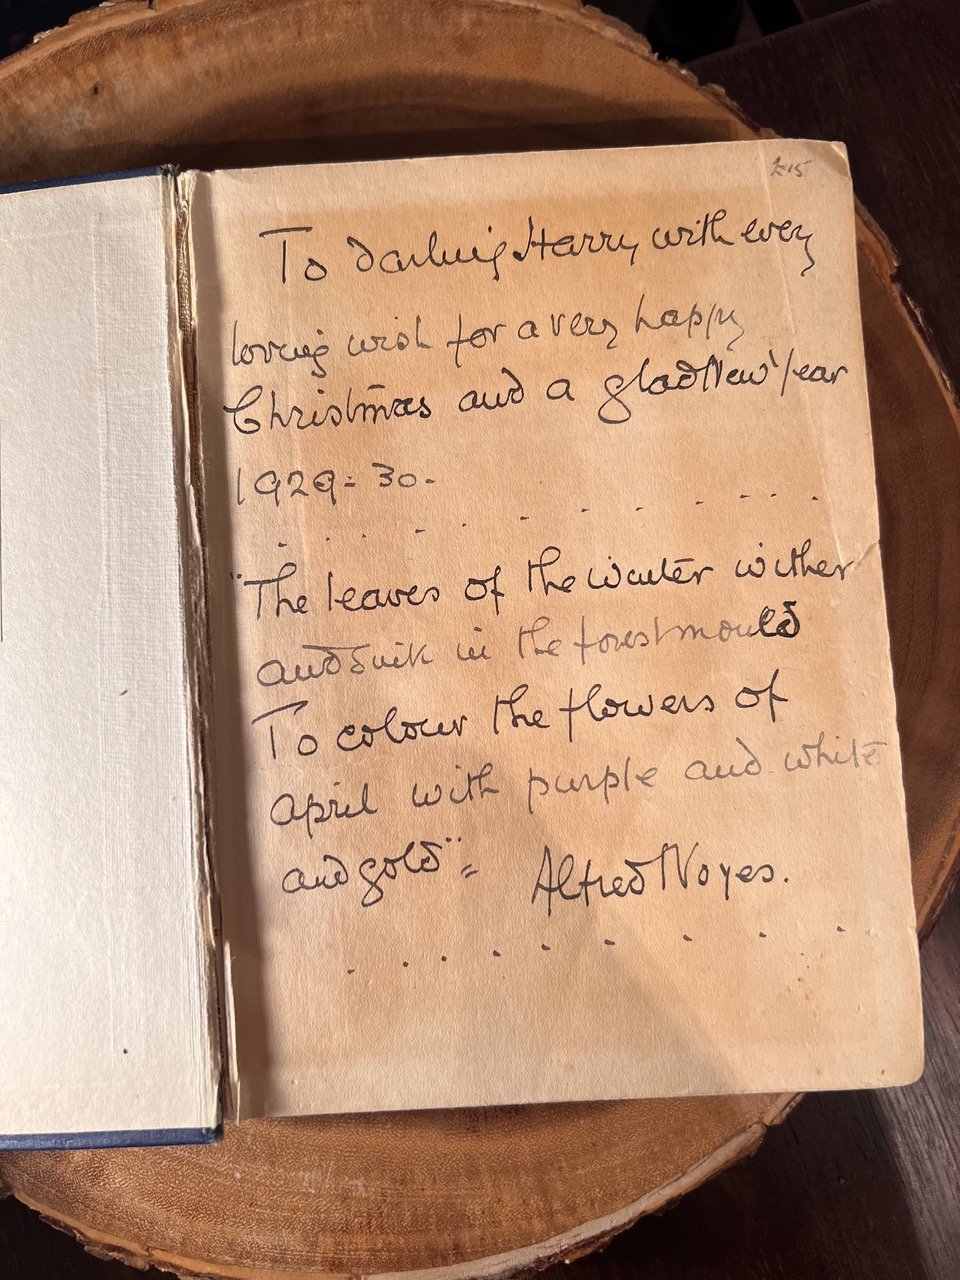 £15
To darling Harry with every
loving wish for a very happy
Christmas and a glad New Year
1929-30.
"The leaves of the winter wither
and sink in the forest mould
To colour the flowers of
april with purple and white
and gold"=  Alfred Noyes.